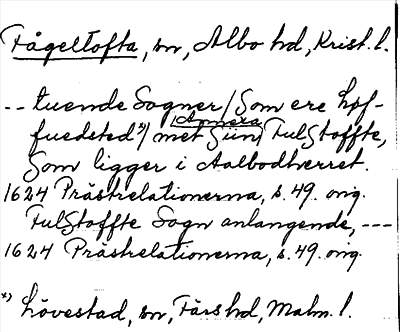 Fågeltofta, sn, Albo hd, Krist. l.
-- tuende Sogner /Som ere høf-
fuedsted*)/ met Siin /Annexa/ Fulstoffte,
Som ligger i Aalbodherret.
1624 Prästrelationerna, s. 49. orig.
Fulstoffte Sogn anlangende, ---
1624 Prästrelationerna, s. 49. orig.
*) Lövestad, sn, Färs hd, Malm. l.